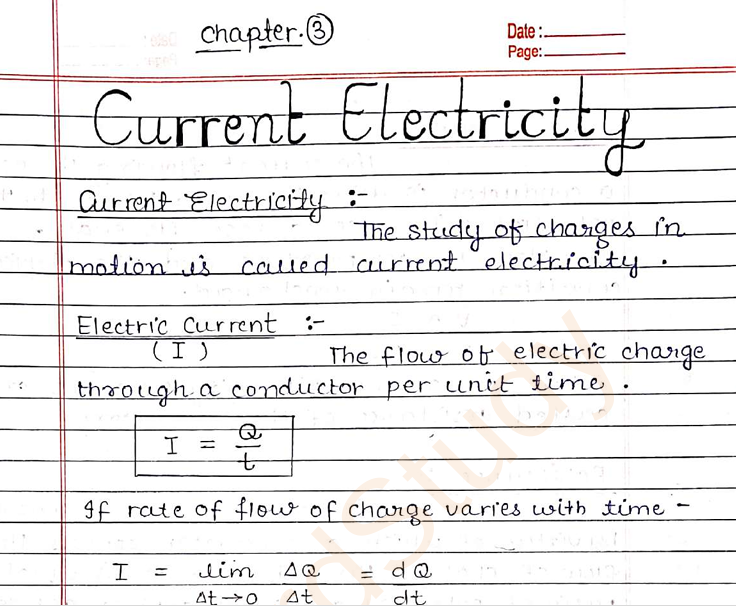 chapter.③
Date :
Page:
Current Electricity
Current Electricity :-
The study of charges in
motion is called current electricity .
Electric Current :-
( I ) The flow of electric charge
through a conductor per unit time .
I = Q/t
If rate of flow of charge varies with time -
I = lim Δt→0 ΔQ/Δt = dQ/dt
dStudy